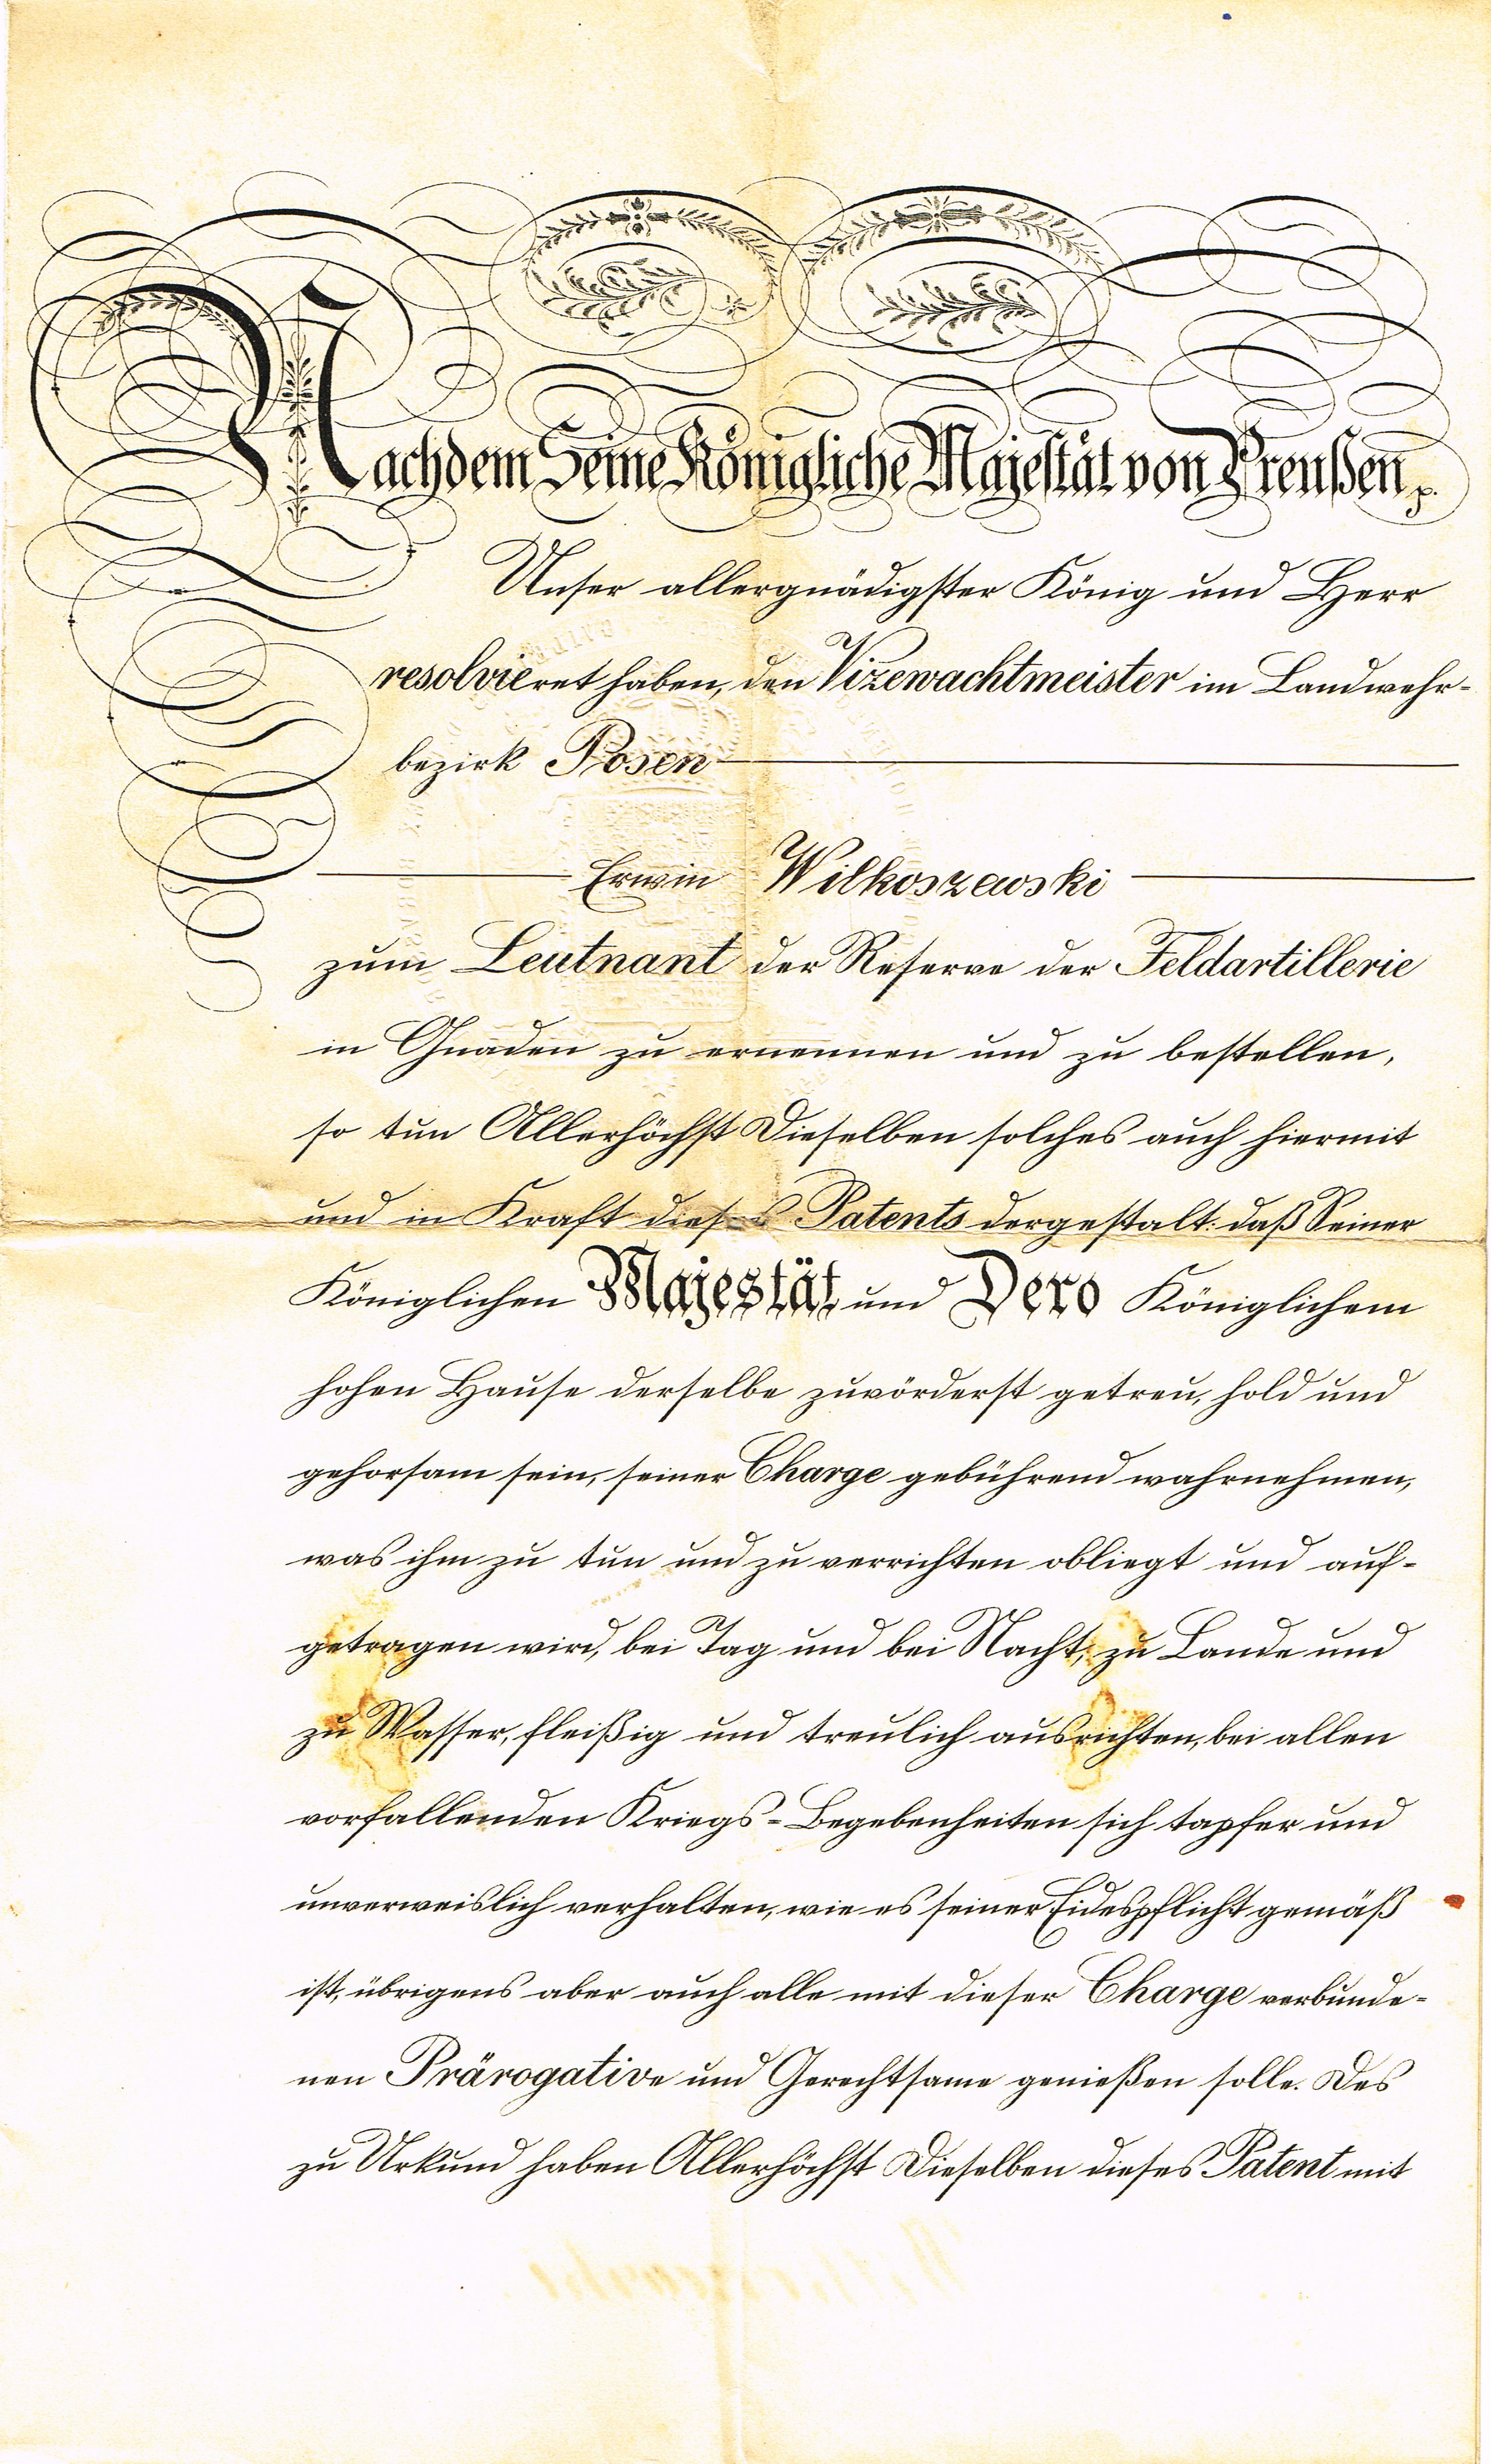 Nachdem Seine Königliche Majestät von Preußen p.
Unser allergnädigster König und Herr
resolvieret haben, den Vizewachtmeister im Landwehr-
bezirk Posen
Erwin Wilkoszewski
zum Leutnant der Reserve der Feldartillerie
in Gnaden zu ernennen und zu bestellen,
so tun Allerhöchst Dieselben solches auch hiermit
und in Kraft dieses Patents dergestalt: daß Seiner
Königlichen Majestät und Dero Königlichem
hohen Hause derselbe zuvörderst getreu, hold und
gehorsam sein, seiner Charge gebührend wahrnehmen,
was ihm zu tun und zu verrichten obliegt und auf-
getragen wird, bei Tag und bei Nacht, zu Lande und
zu Wasser, fleißig und treulich ausrichten, bei allen
vorfallenden Kriegs-Begebenheiten sich tapfer und
unverweislich verhalten, wie es seiner Eidespflicht gemäß
ist, übrigens aber auch alle mit dieser Charge verbunde-
nen Prärogative und Gerechtsame genießen solle. Des
zu Urkund haben Allerhöchst Dieselben dieses Patent mit